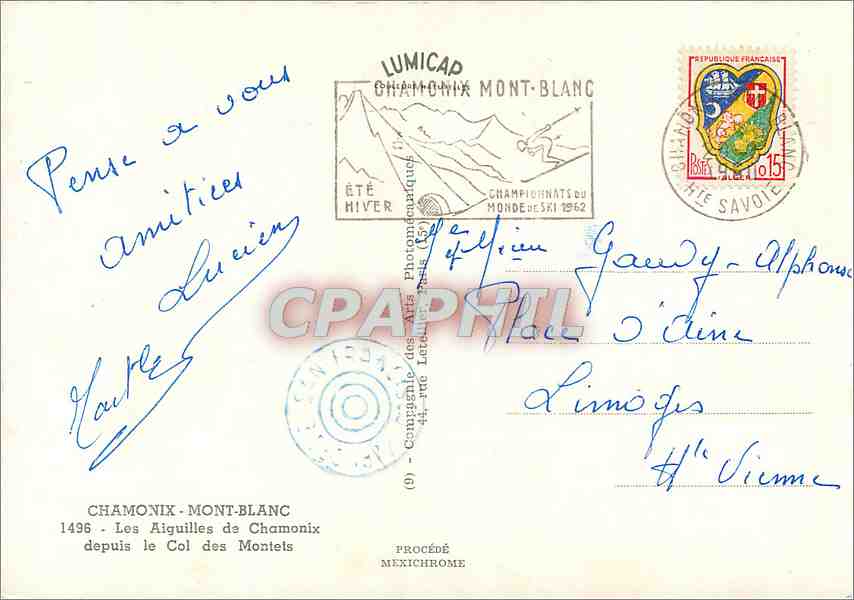 LUMICAP
COULEURS NATURELLES
CHAMONIX MONT-BLANC
ÉTÉ
HIVER
CHAMPIONNATS DU
MONDE DE SKI 1962
RÉPUBLIQUE FRANÇAISE
POSTES
0,15F
ALGER
CHAMONIX BLANC
HTE SAVOIE
Pense a vous
amitiées
Lucien
Mr et Mme
Gaudy-Alphonse
Place d'Aine
Limoges
Hte Vienne
CPAPHIL
(9) - Compagnie des Arts Photomécaniques
44, rue Letellier, Paris (15e)
CHAMONIX - MONT-BLANC
1496 - Les Aiguilles de Chamonix
depuis le Col des Montets
PROCÉDÉ
MEXICHROME